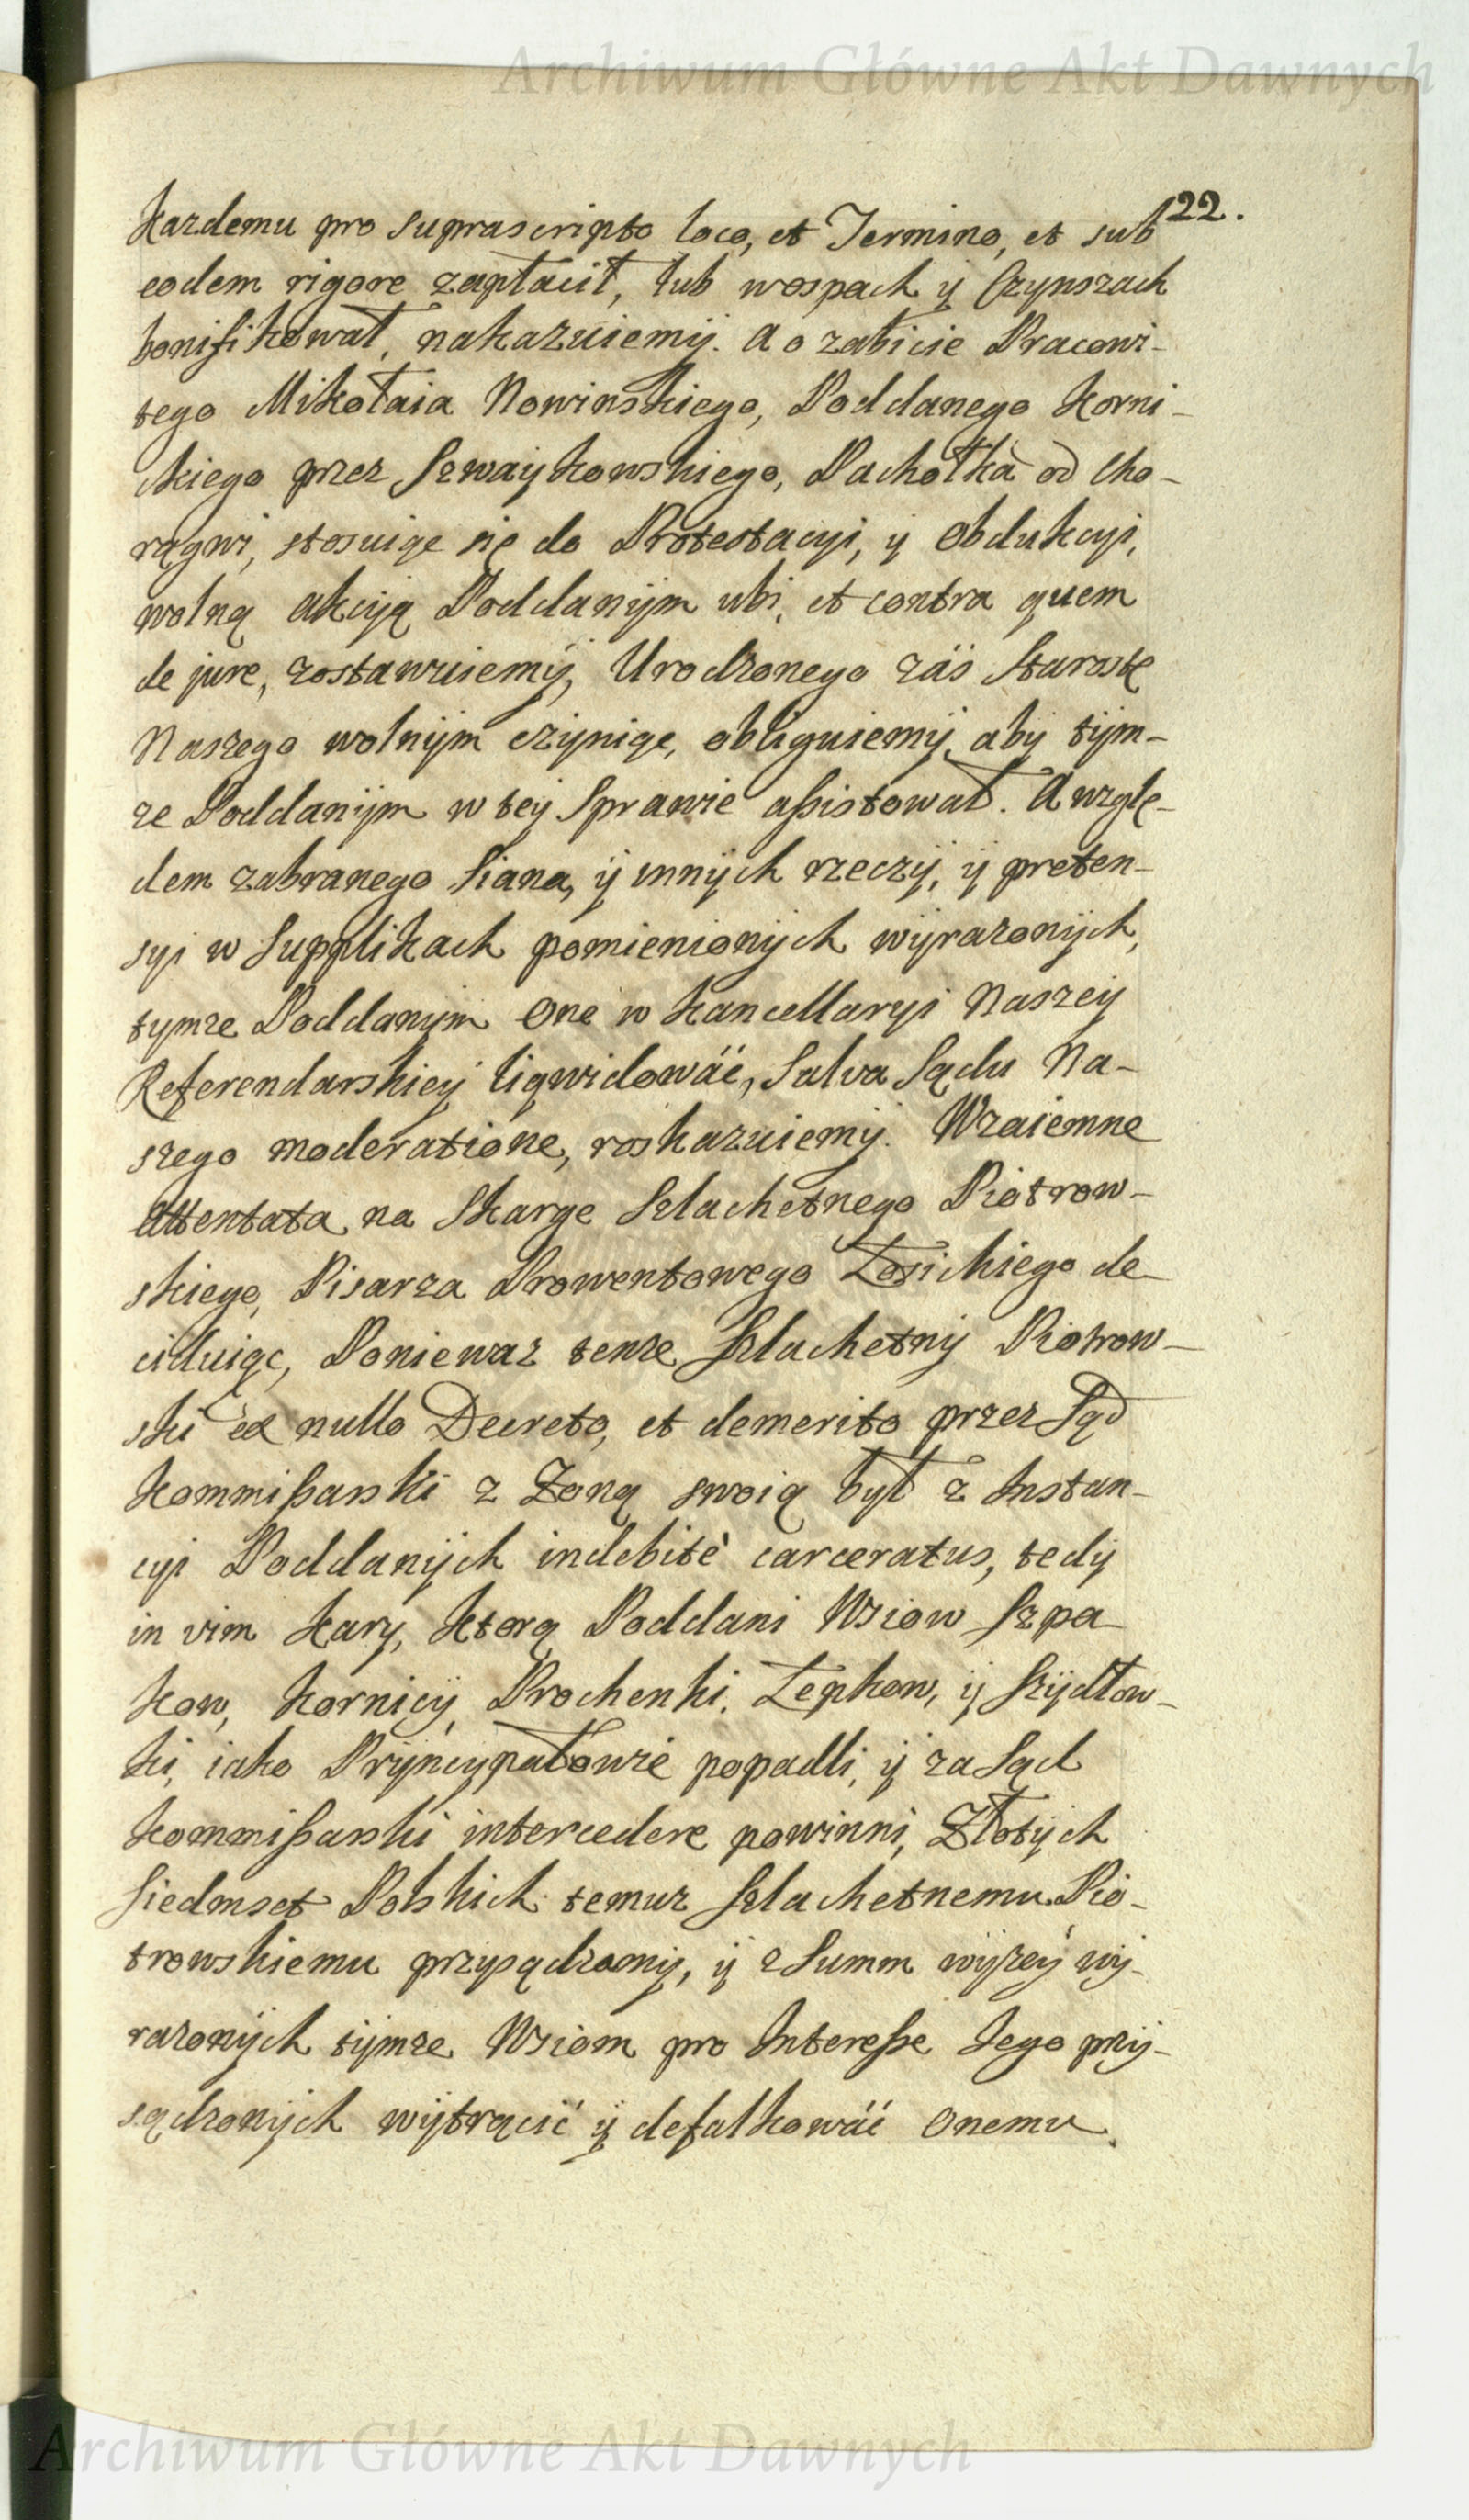 Archiwum Główne Akt Dawnych
122.
Kazdemu pro suprascripto loco, et Termino, et sub
eodem rigore zapłacił, lub wospach ÿ Czynszach
bonifikował, nakazuiemÿ. A o zabicie Pracowi-
tego Mikołaia Nowinskiego, Poddanego Korni-
ckiego przez Szwaykowskiego, Pachołka od Cho-
rągwi, stosuiąc się do Protestacyi, ÿ Obdukcyi,
wolną akcyią Poddanÿm ubi, et contra quem
de jure, zostawuiemÿ, Urodzonego záś Starostę
Naszego wolnÿm czÿniąc, obliguiemÿ, abÿ tÿm-
ze Poddanÿm w teÿ Sprawie aßistował. A wzglę-
dem zabranego Siana, ÿ innÿch rzeczÿ, ÿ preten-
syi w Supplikach pomienionÿch wÿrazonÿch,
tymze Poddanÿm one w Kancellaryi Naszeÿ
Referendarskieÿ liqwidowáć, Salva Sądu Na-
szego moderatione, roskazuiemÿ. Wzaiemne
Attentata na Skargę Szlachetnego Piotrow-
skiego, Pisarza Prowentowego Łosickiego de-
ciduiąc, Poniewaz tenze Szlachetnÿ Piotrow-
ski ex nullo Decreto, et demerito przez Sąd
Kommißarski z Zoną swoią był z Instan-
cyi Poddanÿch indebitè carceratus, tedÿ
in vim Kary, Ktorą Poddani Wsiow Szpa-
kow, Kornicÿ, Prochenki, Łepkow, ÿ Szÿdłow-
ki, iako Prÿncypałowie popadli, ÿ za Sąd
Kommißarski intercedere powinni, Złotÿch
Siedmset Polskich temuz Szlachetnemu Pio-
trowskiemu przysądzamÿ, ÿ z Summ wÿzeÿ wÿ-
razonÿch tÿmze Wsiom pro Interesse Jego przÿ-
sądzonÿch wÿtrącić ÿ defalkowáć onemu.
Archiwum Główne Akt Dawnych